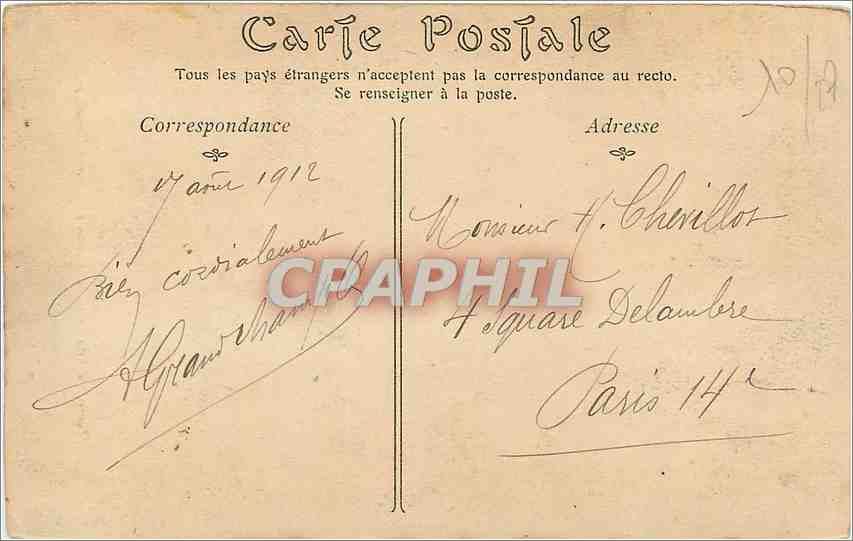 Carte Postale
Tous les pays étrangers n'acceptent pas la correspondance au recto.
Se renseigner à la poste.
Correspondance
17 août 1912
Bien cordialement
Adresse
Monsieur H. Chevillot
4 Square Delambre
Paris 14e
CPAPHIL